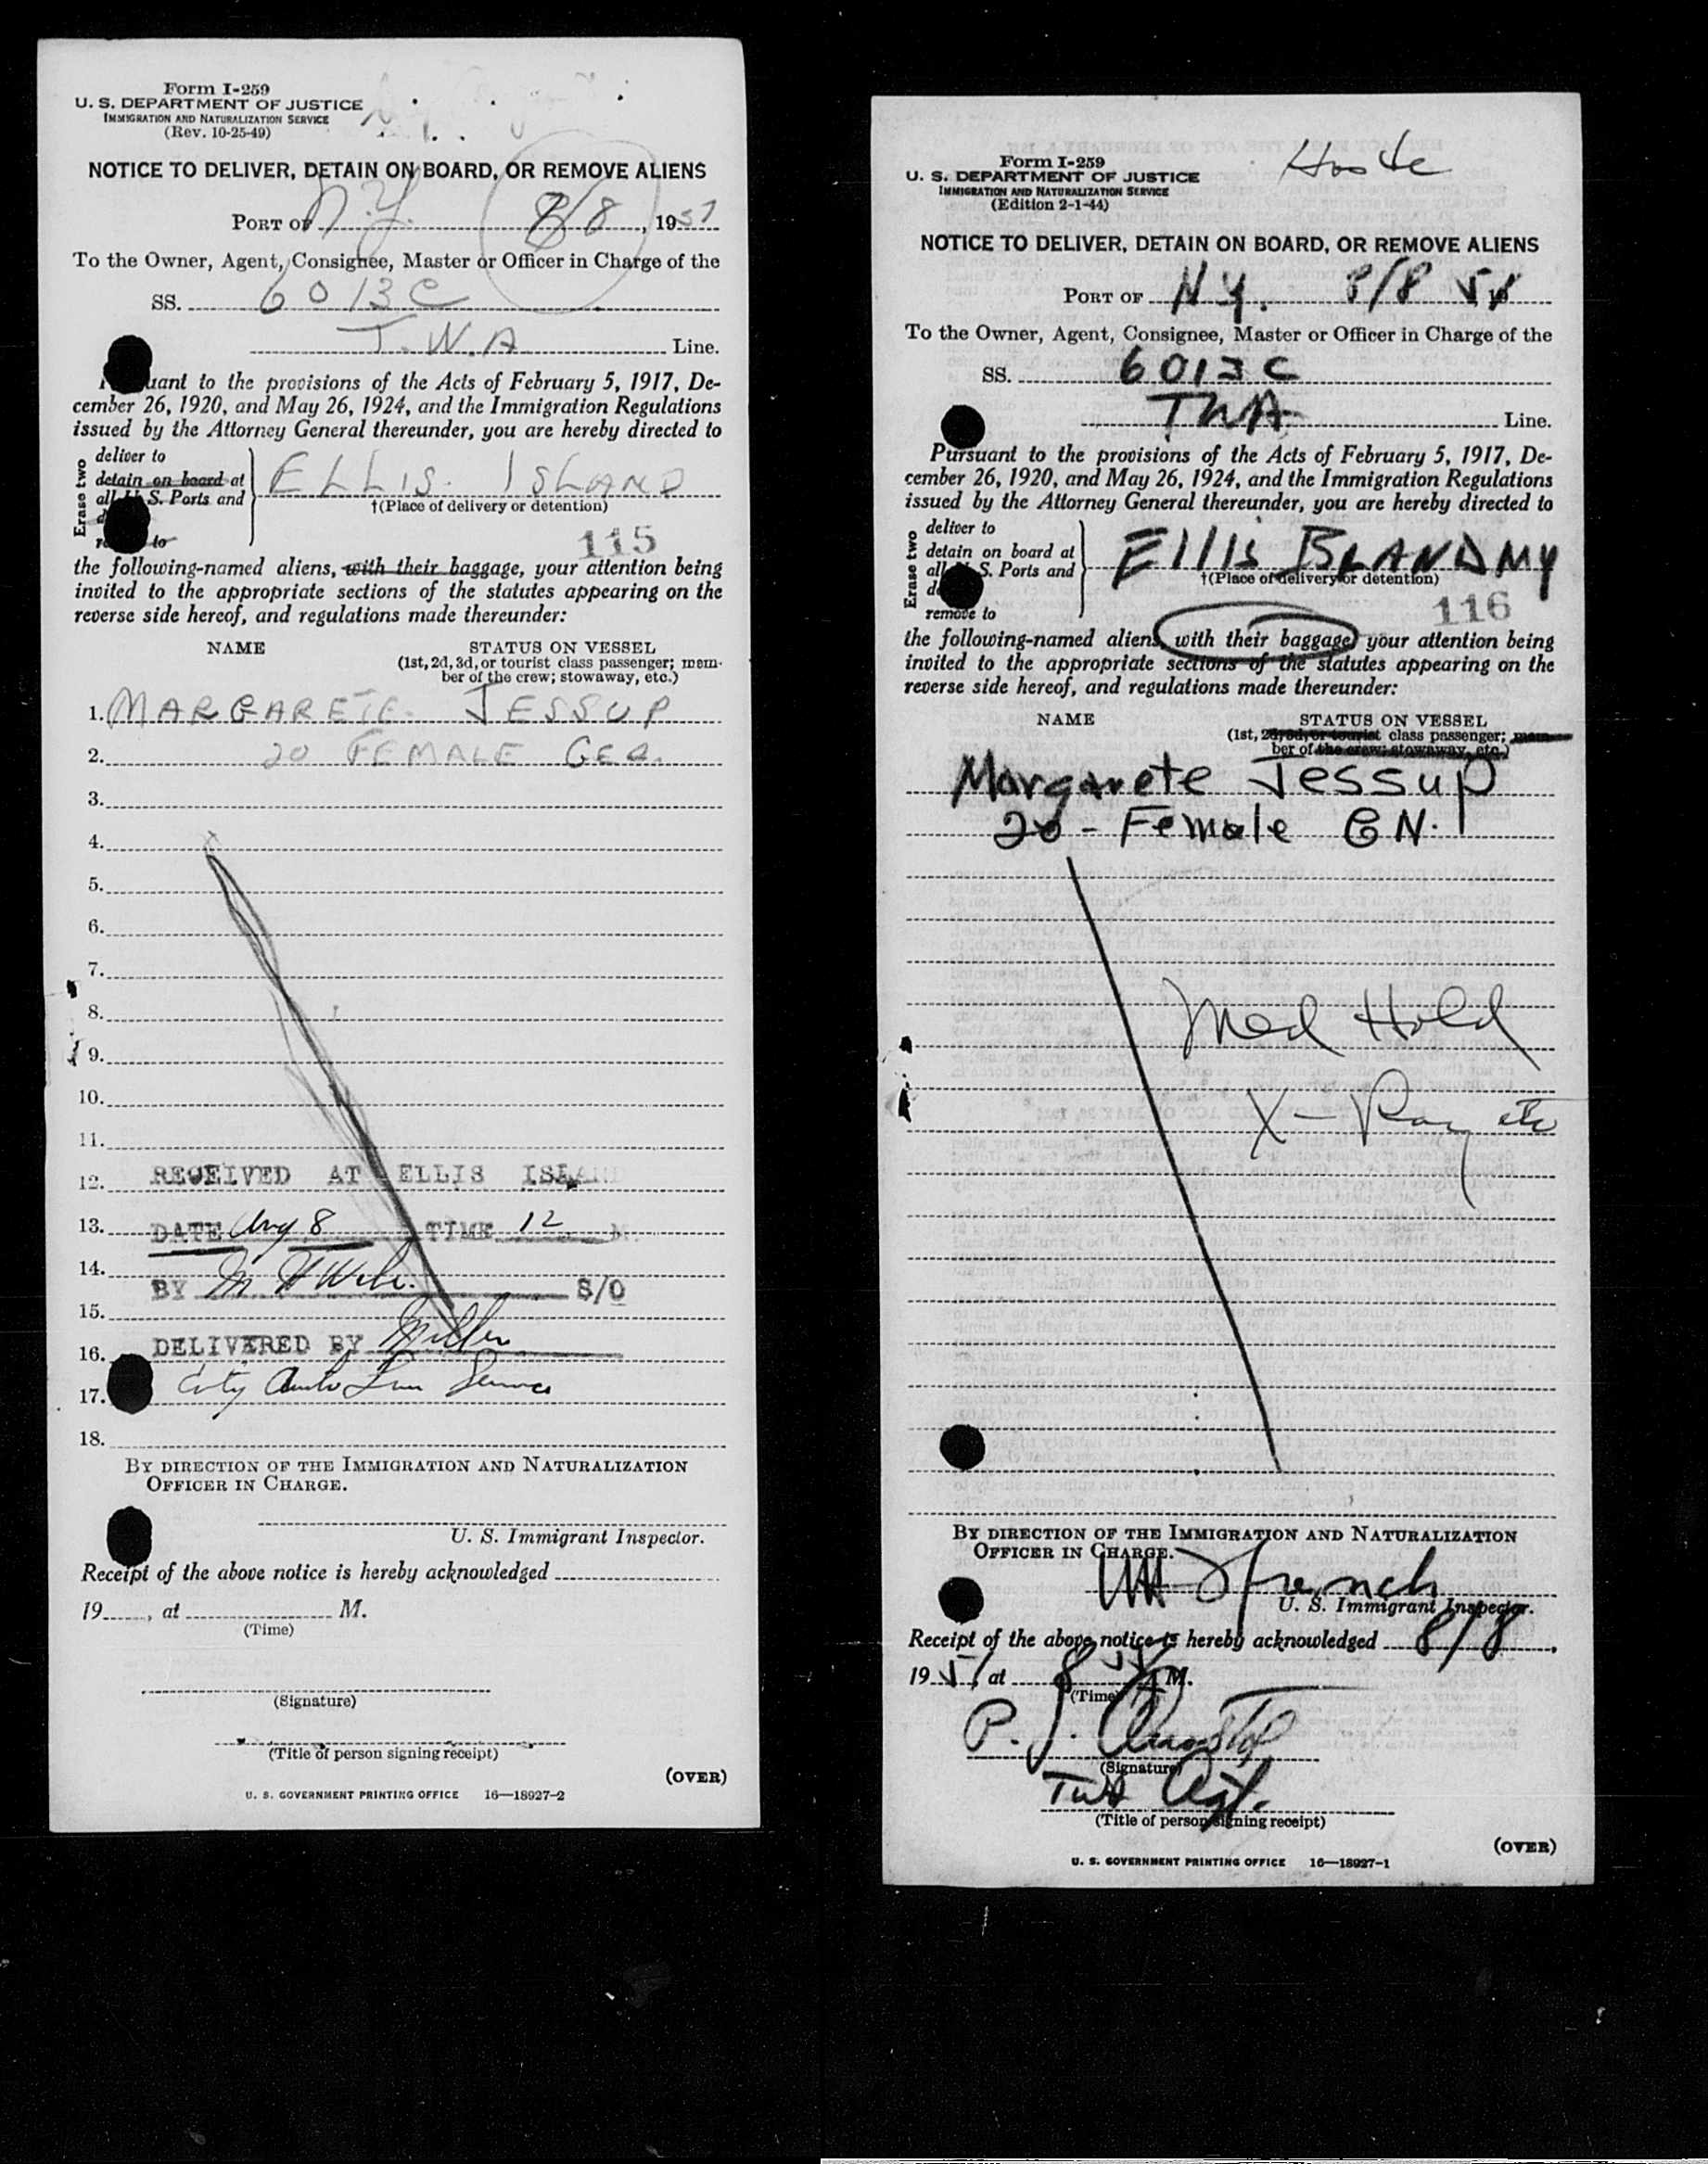 Form I-259
U. S. DEPARTMENT OF JUSTICE
IMMIGRATION AND NATURALIZATION SERVICE
(Rev. 10-25-49)
NOTICE TO DELIVER, DETAIN ON BOARD, OR REMOVE ALIENS
PORT OF N.Y. 8/8, 1951
To the Owner, Agent, Consignee, Master or Officer in Charge of the
SS. 6013C
T.W.A Line.
uant to the provisions of the Acts of February 5, 1917, De-
cember 26, 1920, and May 26, 1924, and the Immigration Regulations
issued by the Attorney General thereunder, you are hereby directed to
Erase two
deliver to
detain on board at
all S. Ports and
to
ELLIS ISLAND
†(Place of delivery or detention)
115
the following-named aliens, with their baggage, your attention being
invited to the appropriate sections of the statutes appearing on the
reverse side hereof, and regulations made thereunder:
NAME STATUS ON VESSEL
(1st, 2d, 3d, or tourist class passenger; mem-
ber of the crew; stowaway, etc.)
1. MARGARETE JESSUP
2. 20 FEMALE GER.
3.
4.
5.
6.
7.
8.
9.
10.
11.
12. RECEIVED AT ELLIS ISLAN
13. DATE Aug 8 TIME 12
14.
BY M S/O
15.
DELIVERED BY Miller
16.
17. City Auto Service
18.
BY DIRECTION OF THE IMMIGRATION AND NATURALIZATION
OFFICER IN CHARGE.
U. S. Immigrant Inspector.
Receipt of the above notice is hereby acknowledged
19 , at M.
(Time)
(Signature)
(Title of person signing receipt)
(OVER)
U. S. GOVERNMENT PRINTING OFFICE 16—18927-2
Form I-259
U. S. DEPARTMENT OF JUSTICE
IMMIGRATION AND NATURALIZATION SERVICE
(Edition 2-1-44)
NOTICE TO DELIVER, DETAIN ON BOARD, OR REMOVE ALIENS
PORT OF N.Y. 8/8
To the Owner, Agent, Consignee, Master or Officer in Charge of the
SS. 6013C
TWA Line.
Pursuant to the provisions of the Acts of February 5, 1917, De-
cember 26, 1920, and May 26, 1924, and the Immigration Regulations
issued by the Attorney General thereunder, you are hereby directed to
Erase two
deliver to
detain on board at
all S. Ports and
remove to
Ellis ISLAND NY
†(Place of delivery or detention)
116
the following-named aliens, with their baggage, your attention being
invited to the appropriate sections of the statutes appearing on the
reverse side hereof, and regulations made thereunder:
NAME STATUS ON VESSEL
(1st, 2d, 3d, or tourist class passenger; mem-
ber of the crew; stowaway, etc.)
Margarete Jessup
20 - Female GN.
Med Hold
X-Ray etc
BY DIRECTION OF THE IMMIGRATION AND NATURALIZATION
OFFICER IN CHARGE.
French
U. S. Immigrant Inspector.
Receipt of the above notice is hereby acknowledged 8/8,
1951, at 8 M.
(Time)
P. J.
(Signature)
TWA Agt.
(Title of person signing receipt)
(OVER)
U. S. GOVERNMENT PRINTING OFFICE 16—18927-1